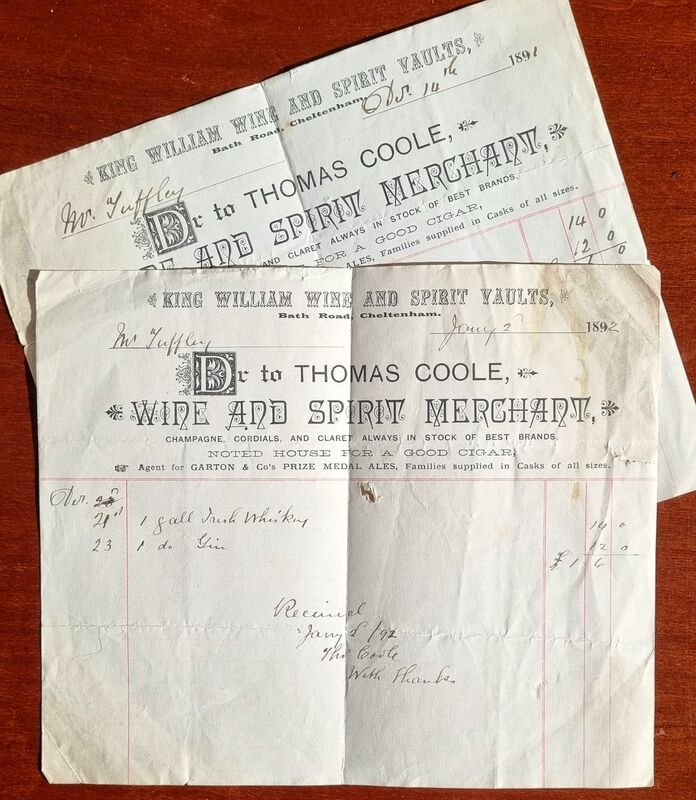 KING WILLIAM WINE AND SPIRIT VAULTS,
Bath Road, Cheltenham.
14th 1891
Mr. Tuffley
Dr to THOMAS COOLE,
E AND SPIRIT MERCHANT,
AND CLARET ALWAYS IN STOCK OF BEST BRANDS.
FOR A GOOD CIGAR,
ALES, Families supplied in Casks of all sizes.
14 0
12 0
KING WILLIAM WINE AND SPIRIT VAULTS,
Bath Road, Cheltenham.
Mr Tuffley
Jany 2 1892
Dr to THOMAS COOLE,
WINE AND SPIRIT MERCHANT,
CHAMPAGNE, CORDIALS, AND CLARET ALWAYS IN STOCK OF BEST BRANDS.
NOTED HOUSE FOR A GOOD CIGAR,
Agent for GARTON & Co's PRIZE MEDAL ALES, Families supplied in Casks of all sizes.
21st 1 gall Irish Whiskey 14 0
23 1 do Gin 12 0
£ 1 6
Received
Jany 2/92
Thos Coole
With Thanks